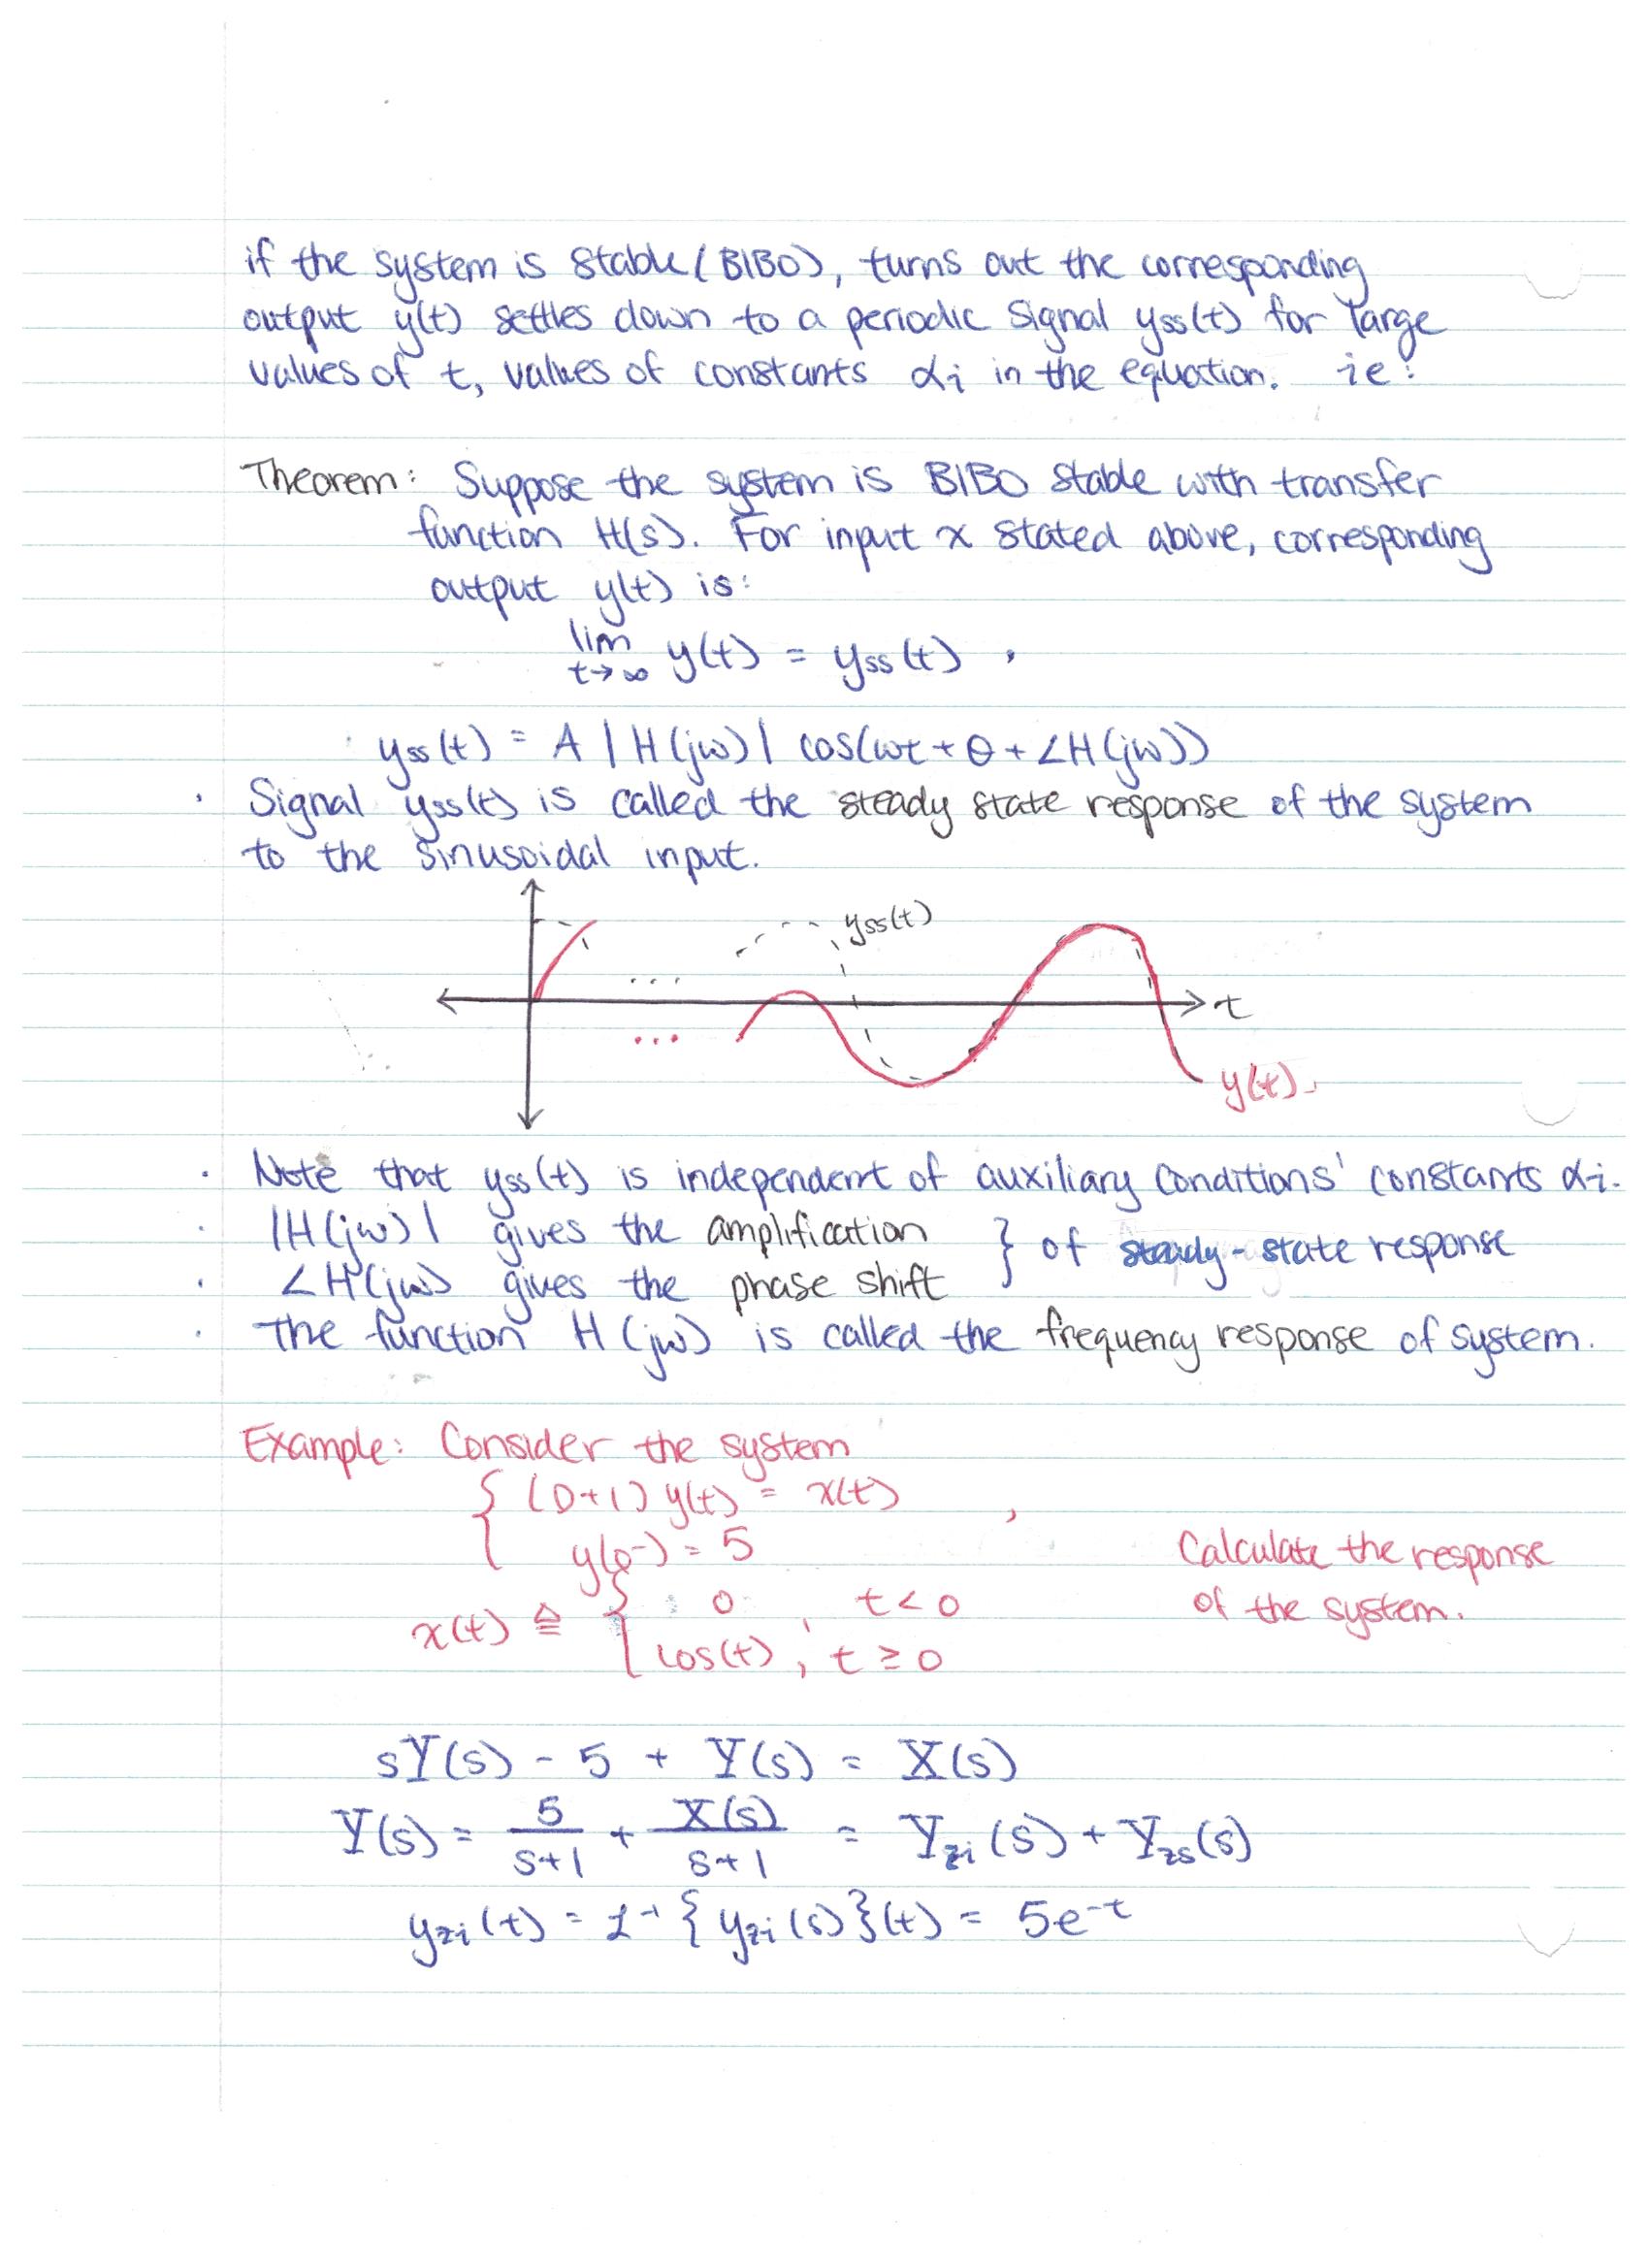 if the system is stable (BIBO), turns out the corresponding
output y(t) settles down to a periodic signal yss(t) for large
values of t, values of constants αi in the equation. ie:
Theorem: Suppose the system is BIBO stable with transfer
function H(s). For input x stated above, corresponding
output y(t) is:
lim t→∞ y(t) = yss(t),
yss(t) = A |H(jω)| cos(ωt + θ + ∠H(jω))
· Signal yss(t) is called the steady state response of the system
to the sinusoidal input.
yss(t)
... 
t
...
y(t).
· Note that yss(t) is independent of auxiliary conditions' constants αi.
· |H(jω)| gives the amplification
} of steady-state response
· ∠H(jω) gives the phase shift
· The function H(jω) is called the frequency response of system.
Example: Consider the system
{ (D+1) y(t) = x(t) ,
y(0⁻) = 5
Calculate the response
of the system.
x(t) ≙ { 0 , t < 0
cos(t) , t ≥ 0
sY(s) - 5 + Y(s) = X(s)
Y(s) = 5/(s+1) + X(s)/(s+1) = Yzi(s) + Yzs(s)
yzi(t) = ℒ⁻¹ {yzi(s)}(t) = 5e⁻ᵗ